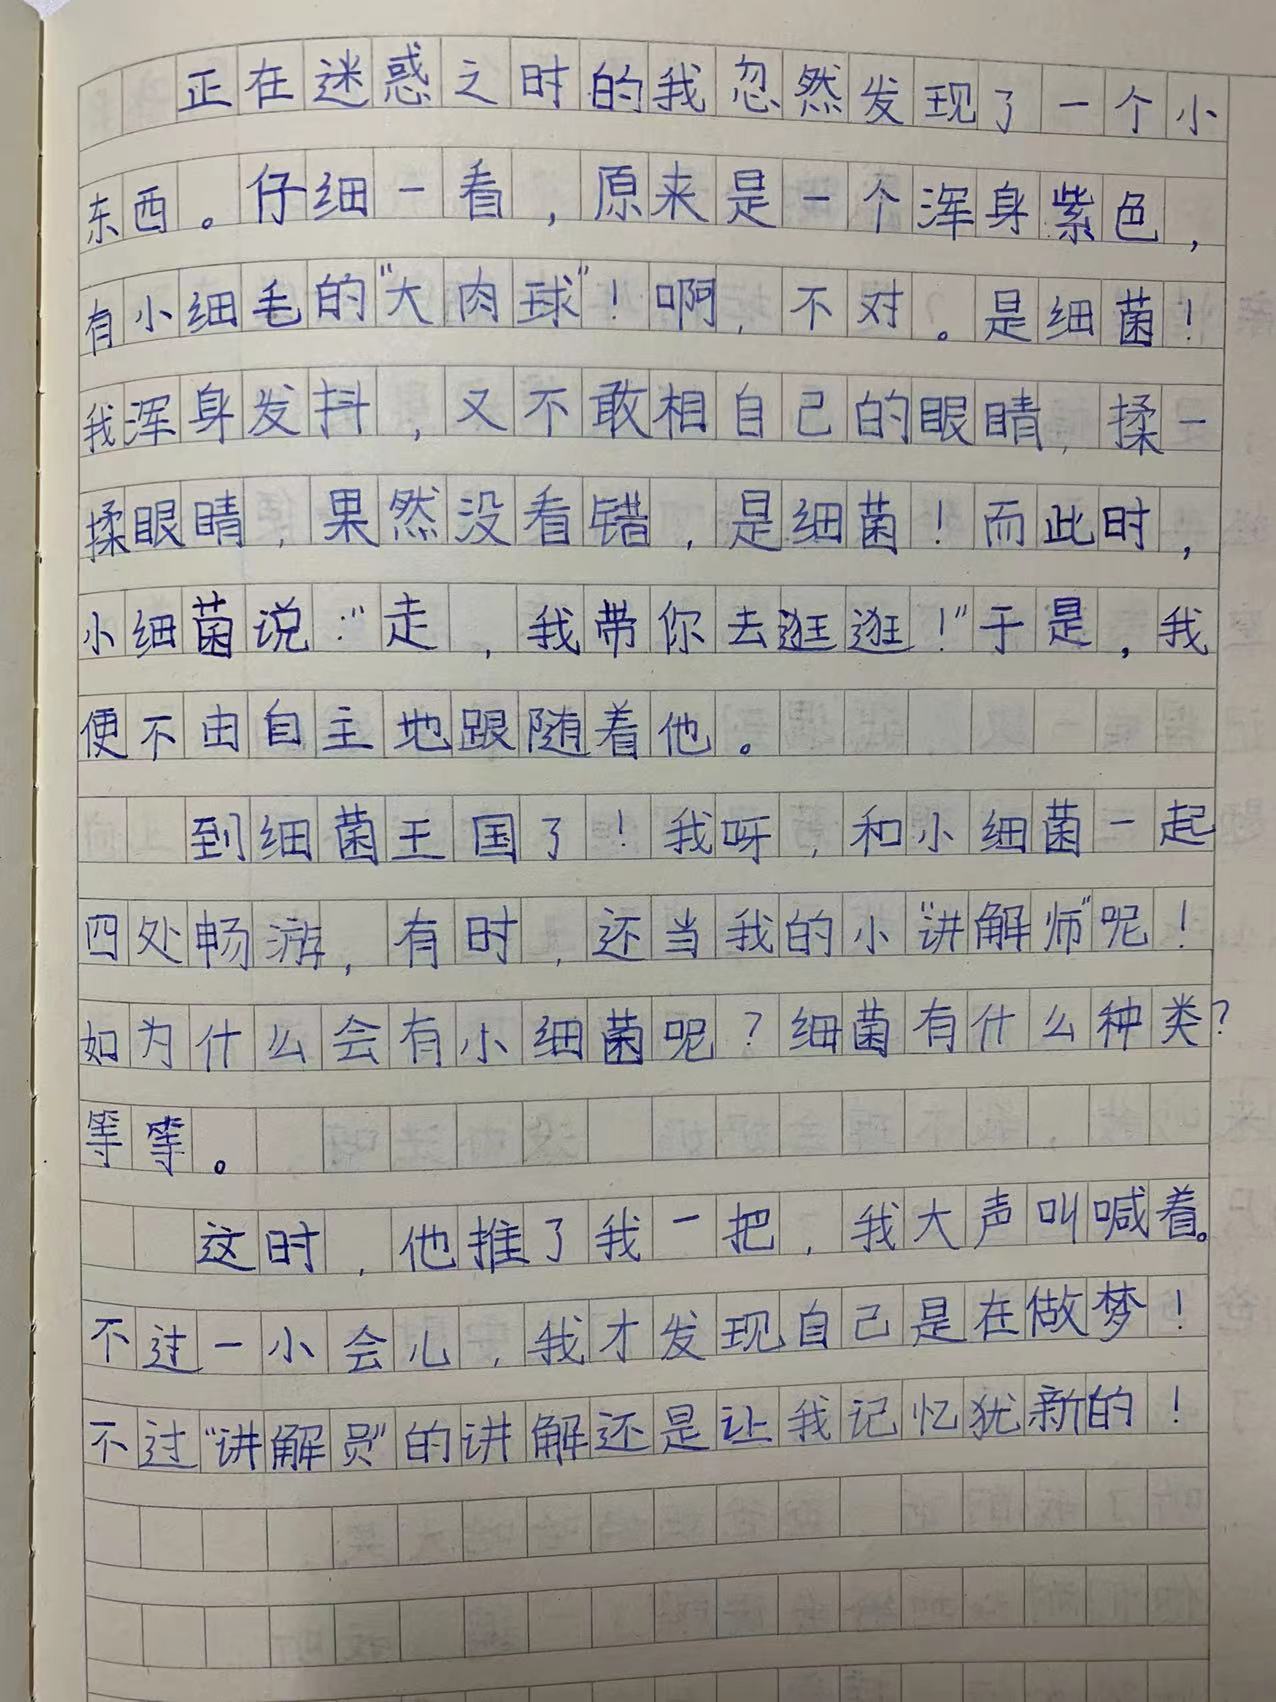 正在迷惑之时的我忽然发现了一个小
东西。仔细一看,原来是一个浑身紫色,
有小细毛的“大肉球”!啊,不对。是细菌!
我浑身发抖,又不敢相自己的眼睛,揉一
揉眼睛,果然没看错,是细菌!而此时,
小细菌说:“走,我带你去逛逛!”于是,我
便不由自主地跟随着他。
到细菌王国了!我呀,和小细菌一起
四处畅游,有时,还当我的小“讲解师”呢!
如为什么会有小细菌呢?细菌有什么种类?
等等。
这时,他推了我一把,我大声叫喊着。
不过一小会儿,我才发现自己是在做梦!
不过“讲解员”的讲解还是让我记忆犹新的!